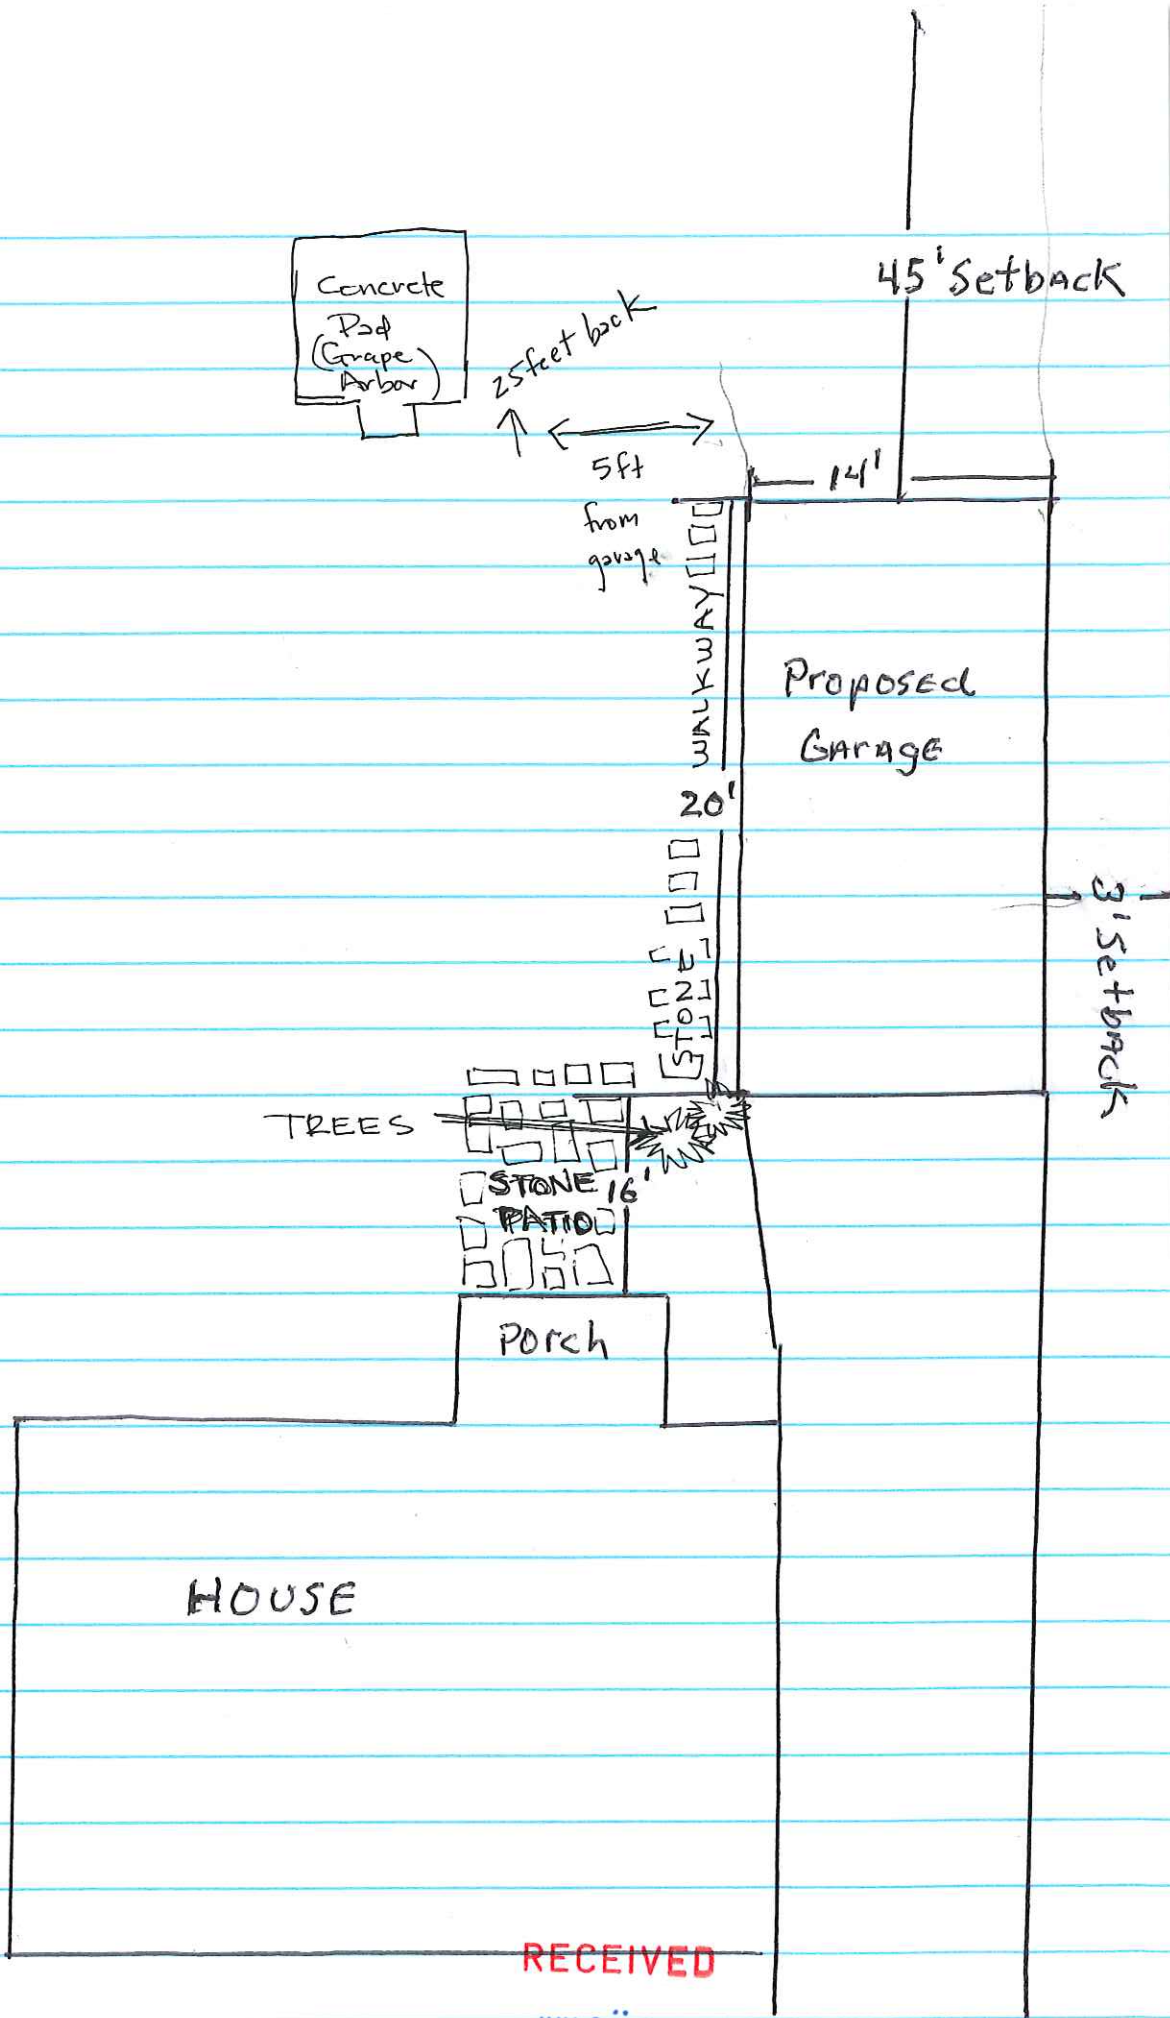 45' Setback
Concrete
Pad
(Grape
Arbor)
25 feet back
5ft
from
garage
14'
WALKWAY
Proposed
Garage
20'
3' Setback
STONE
TREES
STONE
PATIO
16'
Porch
HOUSE
RECEIVED